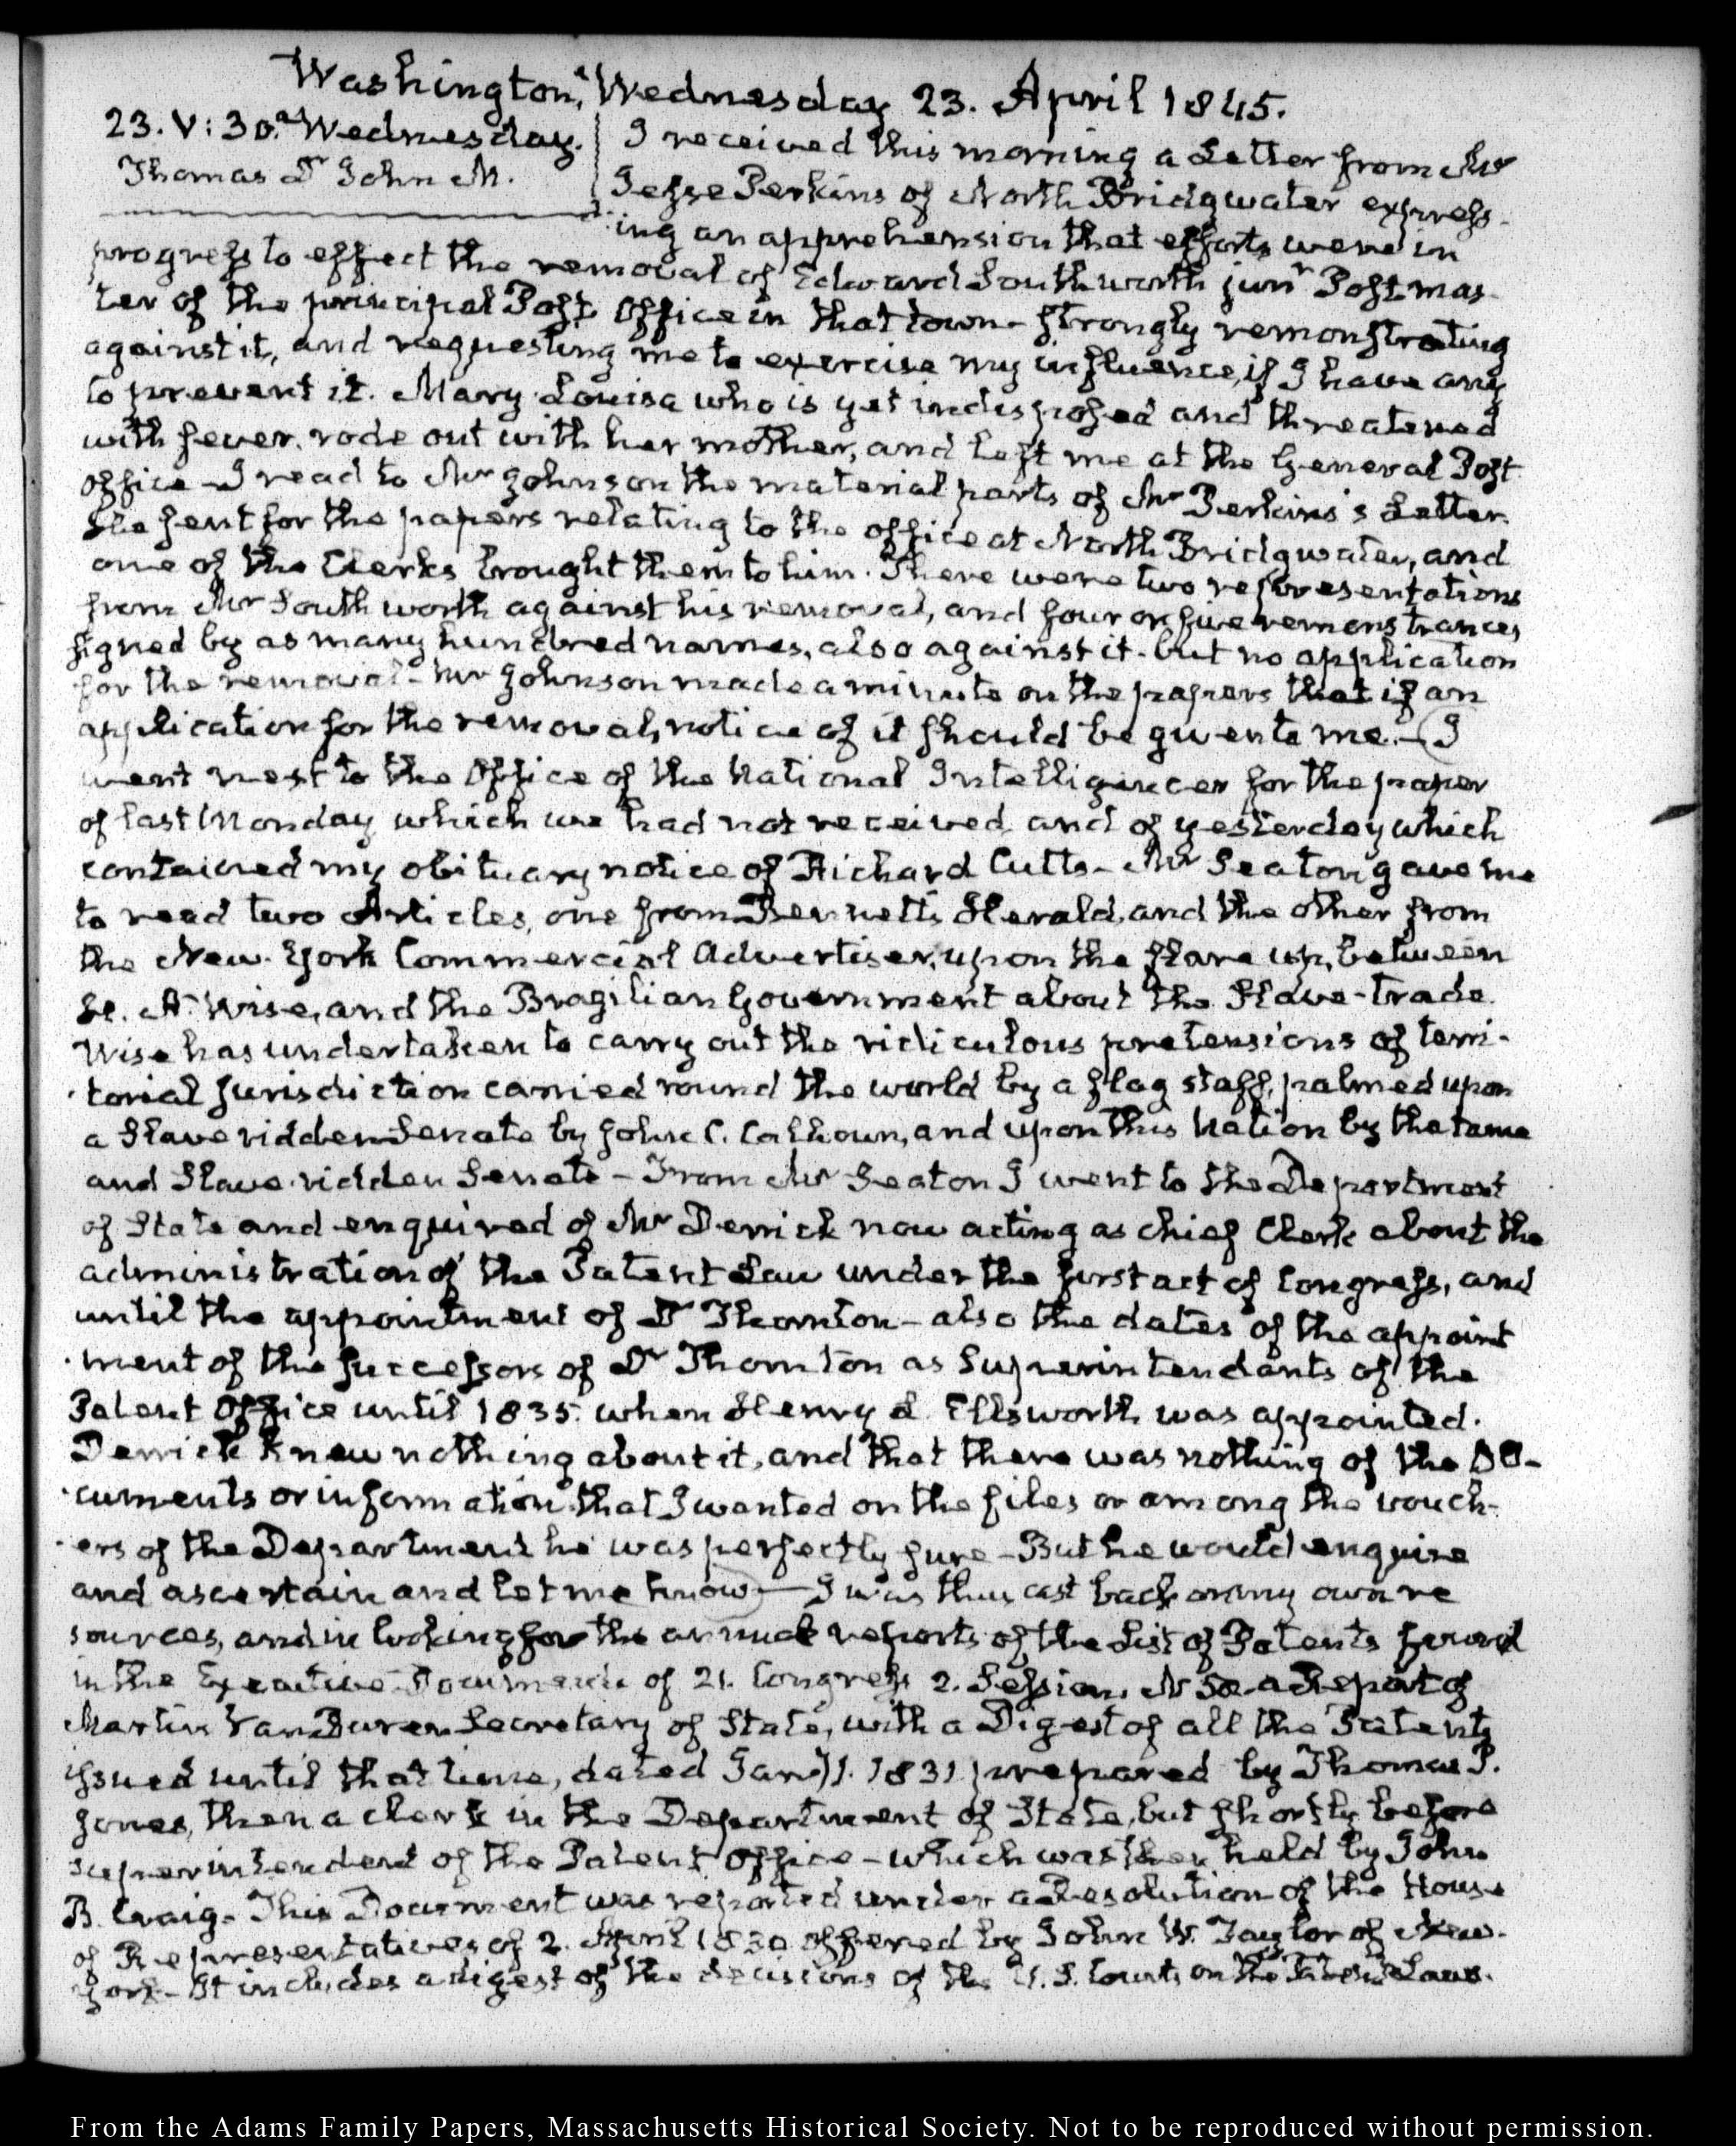 Washington, Wednesday 23. April 1845.
23. V: 30. Wednesday.
Thomas Dr John M.
I received this morning a Letter from Mr
Jesse Perkins of North Bridgwater express-
ing an apprehension that efforts were in
progress to effect the removal of Edward Southworth junr Postmas-
ter of the principal Post Office in that town - strongly remonstrating
against it, and requesting me to exercise my influence, if I have any
to prevent it. Mary Louisa who is yet indisposed and threatened
with fever. rode out with her mother, and left me at the General Post
office - I read to Mr Johnson the material parts of Mr Perkins's Letter.
He sent for the papers relating to the office at North Bridgwater, and
one of the Clerks brought them to him. There were two representations
from Mr Southworth against his removal, and four or five remonstrances
signed by as many hundred names, also against it - but no application
for the removal - Mr Johnson made a minute on the papers that if an
application for the removal, notice of it should be given to me. - I
went next to the Office of the National Intelligencer for the paper
of last Monday which we had not received and of yesterday which
contained my obituary notice of Richard Cutts - Mr Seaton gave me
to read two Articles, one from Bennett's Herald, and the other from
the New-York Commercial Advertiser, upon the flare up, between
H. A. Wise, and the Brazilian Government about the Slave-trade.
Wise has undertaken to carry out the ridiculous pretensions of terri-
torial jurisdiction carried round the world by a flag staff, palmed upon
a Slave ridden Senate by John C. Calhoun, and upon this Nation by the tame
and Slave-ridden Senate - From Mr Seaton I went to the Department
of State and enquired of Mr Derrick now acting as chief Clerk about the
administration of the Patent Law under the first act of Congress, and
until the appointment of Dr Thornton - also the dates of the appoint
ment of the successors of Dr Thornton as Superintendants of the
Patent Office until 1835. when Henry L. Ellsworth was appointed.
Derrick knew nothing about it, and that there was nothing of the Do-
cuments or information that I wanted on the files or among the vouch-
ers of the Department he was perfectly sure - But he would enquire
and ascertain and let me know - I was thus cast back on my own re
sources, and in looking for the annual reports of the List of Patents found
in the Executive Documents of 21. Congress 2. Session. N 50. a Report of
Martin Van Buren Secretary of State, with a Digest of all the Patents
issued until that time, dated Jany 1. 1831 prepared by Thomas P.
Jones, then a clerk in the Department of State, but shortly before
superintendent of the Patent Office - which was then held by John
B. Craig - This Document was reported under a Resolution of the House
of Representatives of 2. April 1830 offered by John W. Taylor of New-
York - It includes a digest of the decisions of the U. S. Courts on the Patent Laws.
From the Adams Family Papers, Massachusetts Historical Society. Not to be reproduced without permission.